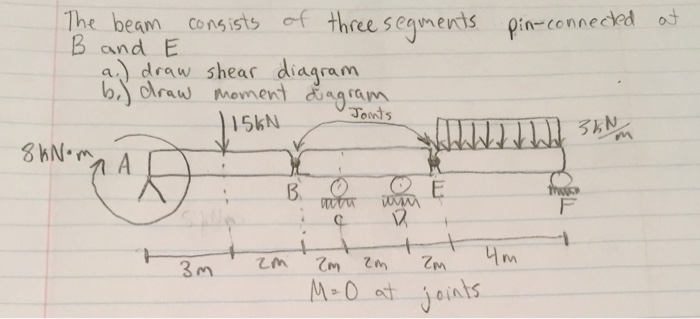 The beam consists of three segments pin-connected at
B and E
a.) draw shear diagram
b.) draw moment diagram
Joints
15kN
3kN/m
8kN·m A
B E
C D F
3m 2m 2m 2m 2m 4m
M=0 at joints